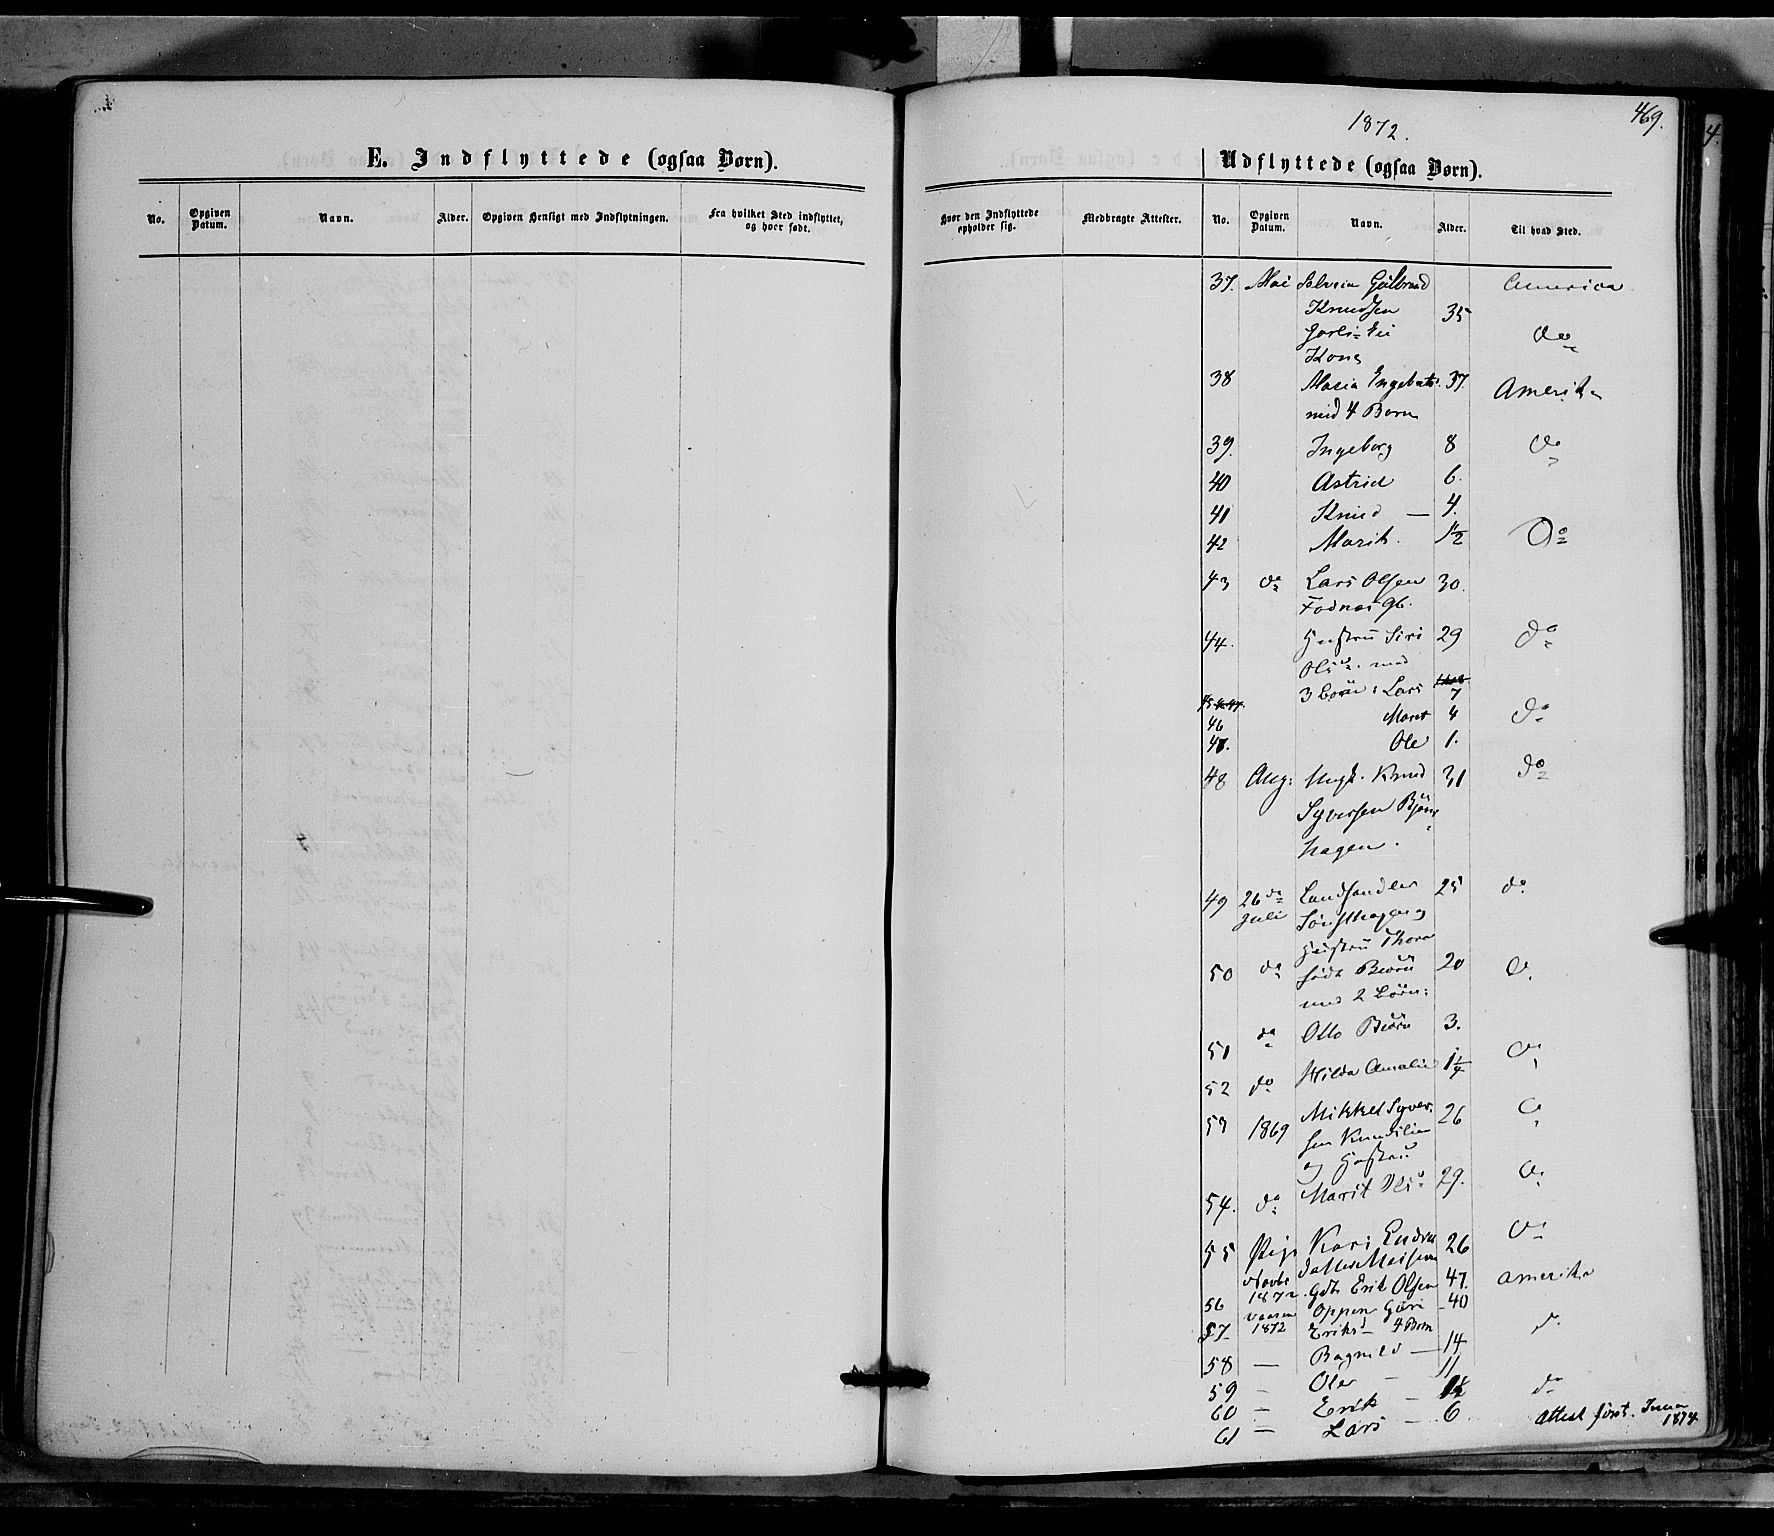 469.
4.
1872.
E. Indflyttede (ogsaa Børn).
No. Opgiven Datum. Navn. Alder. Opgiven Hensigt med Indflytningen. Fra hvilket Sted indflyttet, og hvor født.
Udflyttede (ogsaa Børn).
Hvor den Indflyttede opholder sig. Medbragte Attester. No. Opgiven Datum. Navn. Alder. Til hvad Sted.
37. Mai Gulbrand America
Knudsen 35
do
Kone
38 Maria Engebrts. 37. Amerika
med 4 Børn
39. Ingeborg 8 do
40 Astrid 6.
41 Knud — 4.
42 Marit. 1½ Do
43 do Lars Olsen 30.
Fodnes gb.
44. Hustru Siri 29 do
Olsd. med
3 Børn: Lars 7
46 Marit 4 do
47. Ole 1.
48 Aug: Ungk. Knud 31 do
Syversen Bjørn-
hagen.
49 26de Juli Landhandler 25 do
Hustru Thora
50 do født Biørn 20 do
med 2 Børn:
51 do Otto Biørn 3.
52 do Hilda Amalie 1¼ do
53 1869 Mikkel Syver- 26 do
sen Knudslien
og Hustru
54. do Marit Olsd. 29. do
55 Pige Kari Endres- 26 do
datter
56 1872. Gdb. Erik Olsen 47. Amerika
57 vaaren 1872 Oppen Guri - 40
Eriksd - 4 Børn do
58 — Ragnild — 14
59 - Ole - 11
60 - Erik - do
61 — Lars - 6 Attest først. 1874